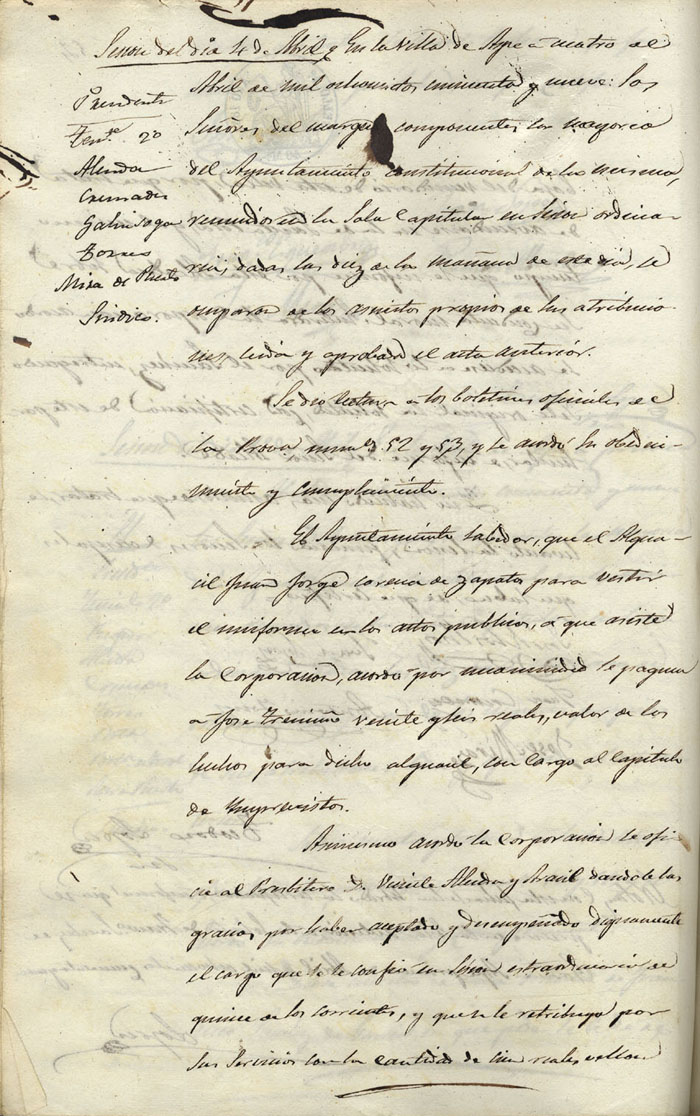 Sesion del dia 4 de Abril
Presidente
Tente. 2o
Alenda
Cremades
Galinsoga
Torres
Mira de Puerto
Sindico.
En la Villa de Aspe a cuatro de
Abril de mil ochocientos cincuenta y nueve: los
Señores del margen componentes la mayoria
del Ayuntamiento constitucional de la misma,
reunidos en la Sala Capitular en Sesion ordina-
ria, dadas las diez de la mañana de este dia, se
ocuparon de los asuntos propios de sus atribucio
nes, leida y aprobada el acta anterior.
Se dio lectura a los boletines oficiales de
la Prova. numos. 52 y 53, y se acordó su obede-
cimiento y cumplimiento.
El Ayuntamiento sabedor, que el Algua-
cil Juan Jorge carecia de zapatos para vestir
el uniforme en los actos publicos, á que asiste
la Corporacion, acordó por unanimidad se paguen
a Jose veinte y seis reales, valor de los
hechos para dicho alguacil, con cargo al Capitulo
de Imprevistos.
Asimismo acordó la Corporacion se ofi-
cie al Presbitero D. Vicente Alenda y dandole las
gracias por haber aceptado y desempeñado dignamente
el cargo que se le confió en Sesion extraordinaria de
quince de los corrientes, y que se le retribuya por
sus Servicios con la cantidad de cien reales vellon